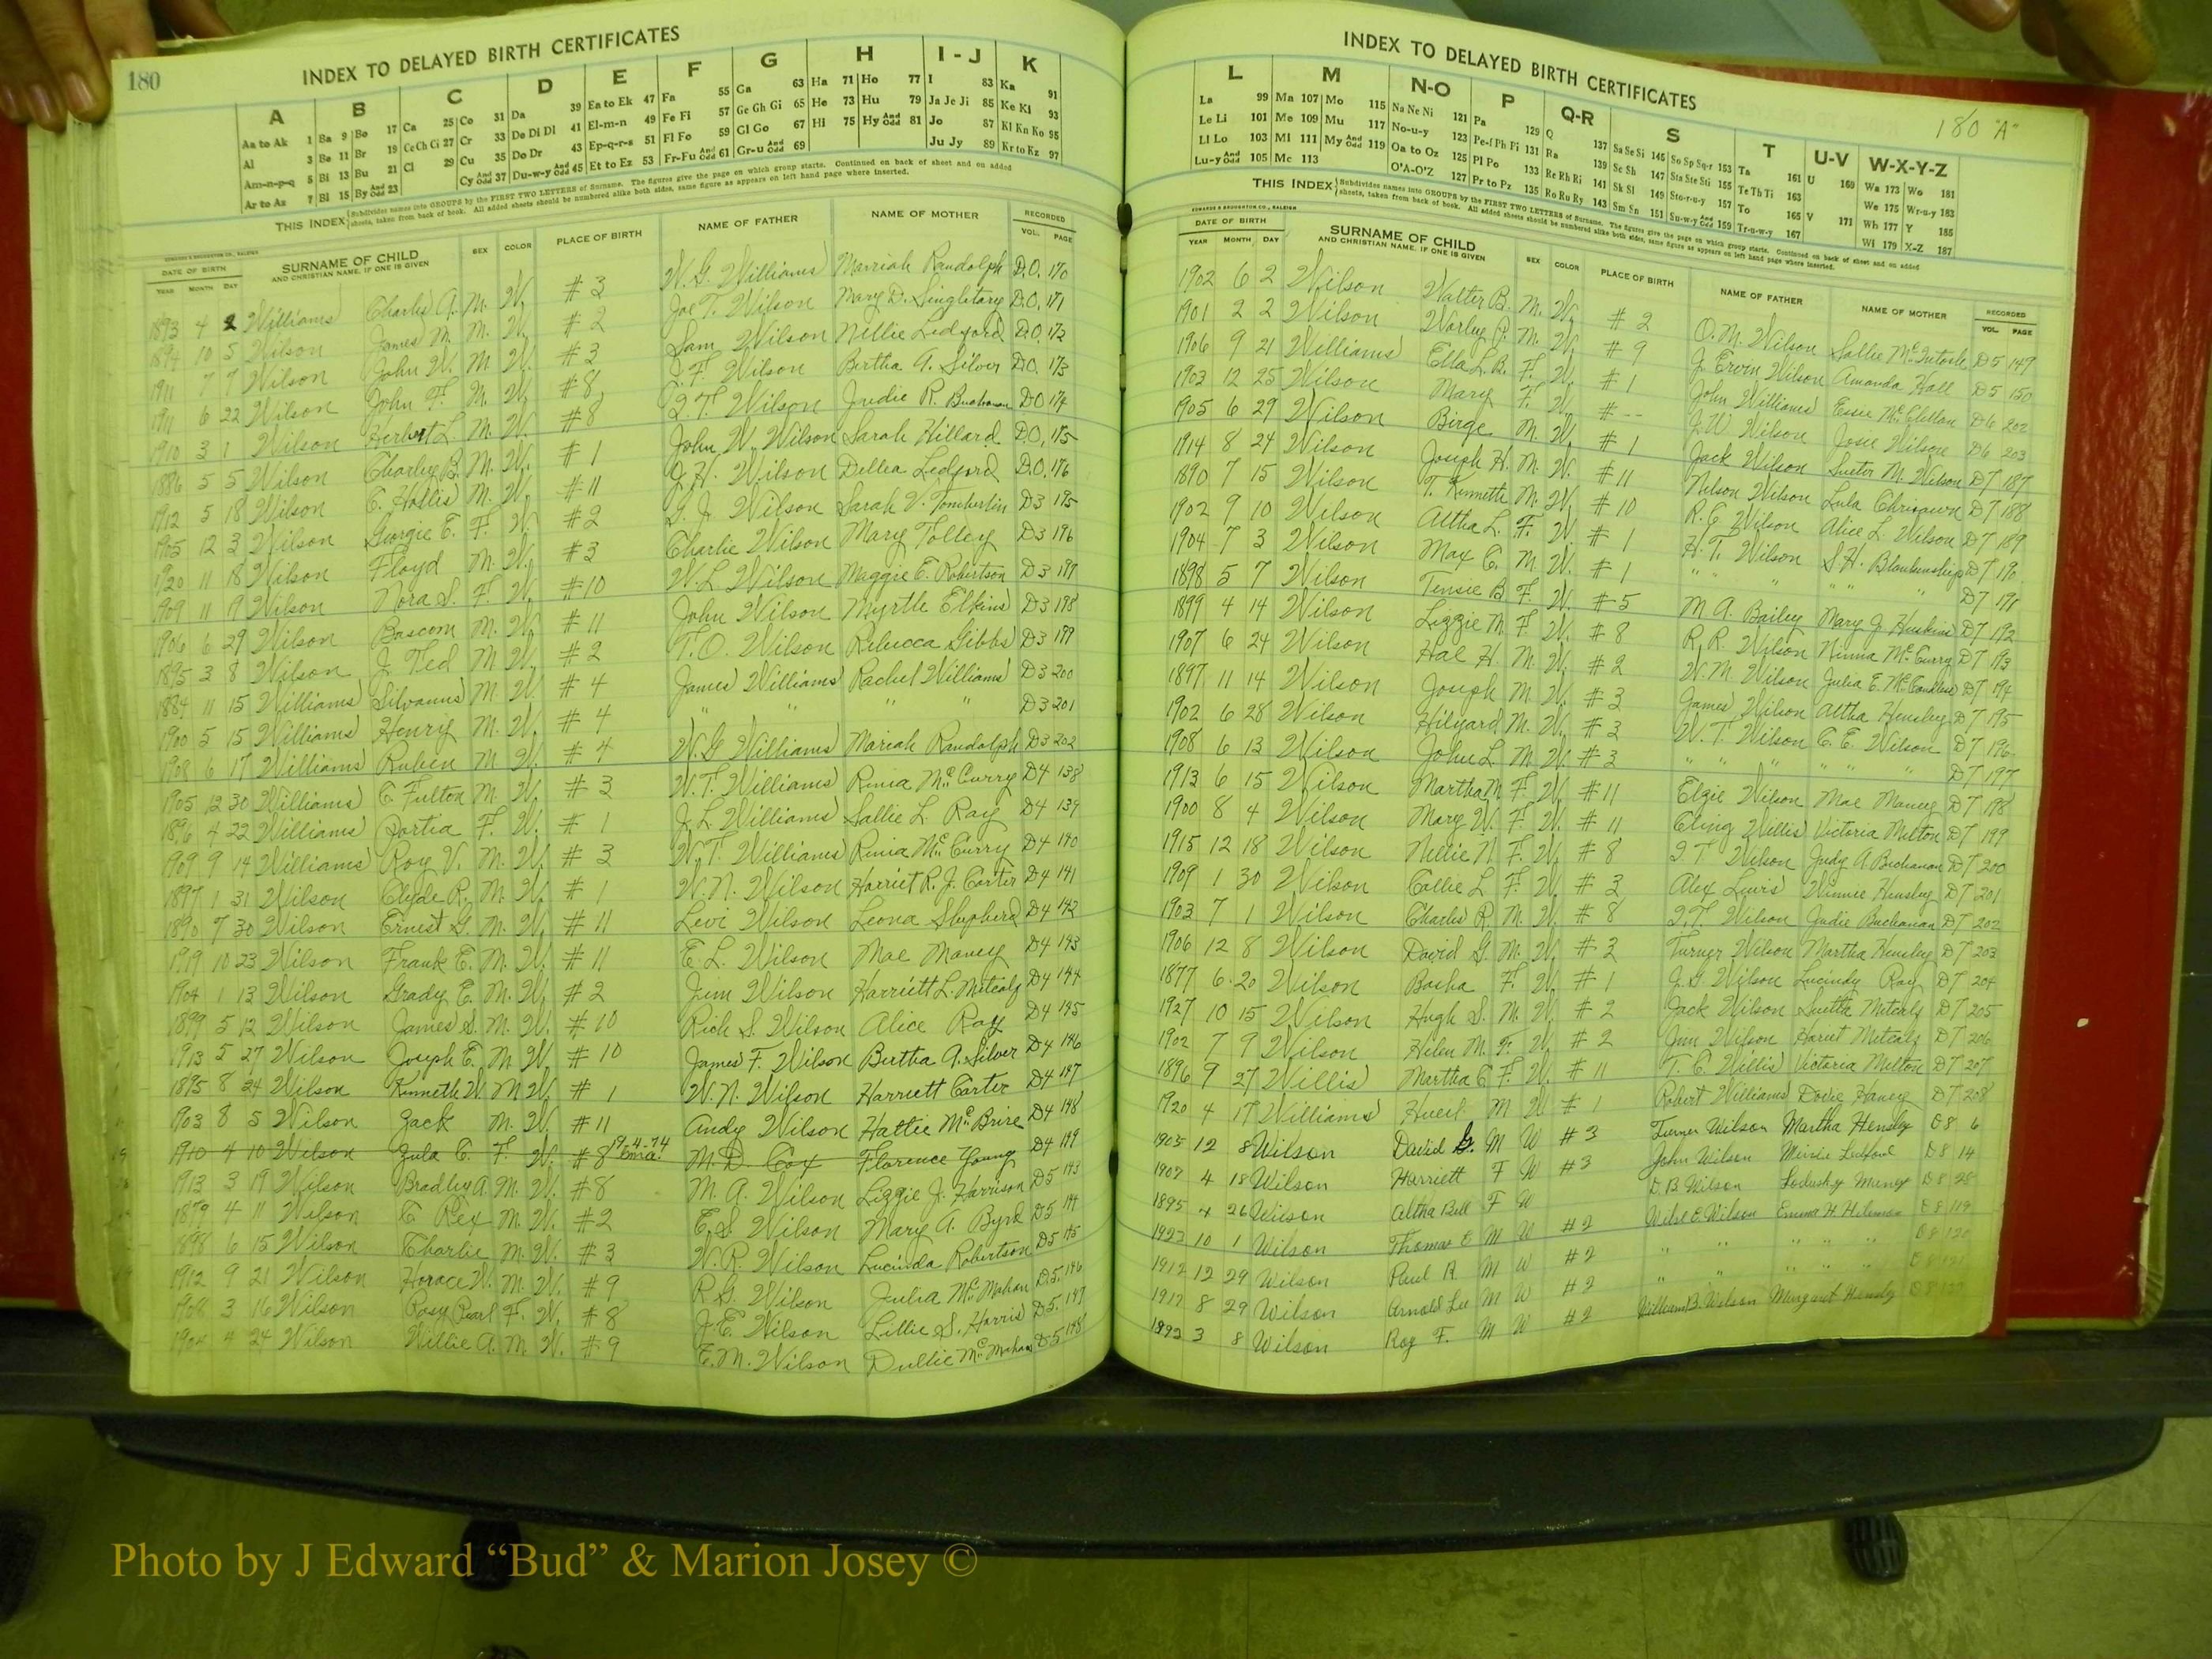 180
INDEX TO DELAYED BIRTH CERTIFICATES
A B C D E F G H I-J K
Aa to Ak 1 Ba 9 Bo 17 Ca 25 Co 31 Da 39 Ea to Ek 47 Fa 55 Ga 63 Ha 71 Ho 77 I 83 Ka 91
Al 3 Be 11 Br 19 Ce Ch Ci 27 Cr 33 De Di Dl 41 El-m-n 49 Fe Fi 57 Ge Gh Gi 65 He 73 Hu 79 Ja Je Ji 85 Ke Ki 93
Am-n-p-q 5 Bi 13 Bu 21 Cl 29 Cu 35 Do Dr 43 Ep-q-r-s 51 Fl Fo 59 Gl Go 67 Hi 75 Hy And Odd 81 Jo 87 Kl Kn Ko 95
Ar to Az 7 Bl 15 By And Odd 23 Cy And Odd 37 Du-w-y And Odd 45 Et to Ez 53 Fr-Fu And Odd 61 Gr-u And Odd 69 Ju Jy 89 Kr to Kz 97
THIS INDEX Subdivides names into GROUPS by the FIRST TWO LETTERS of Surname. The figures give the page on which group starts. Continued on back of sheet and on added
sheets, taken from back of book. All added sheets should be numbered alike both sides, same figure as appears on left hand page where inserted.
EDWARDS & BROUGHTON CO., RALEIGH
DATE OF BIRTH SURNAME OF CHILD SEX COLOR PLACE OF BIRTH NAME OF FATHER NAME OF MOTHER RECORDED
YEAR MONTH DAY AND CHRISTIAN NAME, IF ONE IS GIVEN VOL. PAGE
1893 4 2 Williams Charlie A. M. W. #3 W. G. Williams Marriah Randolph D.O. 170
1894 10 5 Wilson James M. M. W. #2 Joe T. Wilson Mary D. Singletary D.O. 171
1911 7 7 Wilson John W. M W. #3 Sam Wilson Nellie Ledford D.O. 172
1911 6 22 Wilson John F. M. W. #8 J. F. Wilson Bertha A. Silver D.O. 173
1910 3 1 Wilson Herbert L. M. W. #8 I. T. Wilson Judie R. Buchanan D.O 174
1886 5 5 Wilson Charley B. M. W. #1 John W. Wilson Sarah Hillard D.O. 175
1912 5 18 Wilson C. Hollis M. W. #11 J. H. Wilson Dellea Ledford D.O. 176
1905 12 3 Wilson Georgie E. F. W. #2 G. J. Wilson Sarah V. Tomberlin D3 195
1920 11 18 Wilson Floyd M. W. #3 Charlie Wilson Mary Tolley D3 196
1909 11 9 Wilson Nora S. F. W. #10 W. L. Wilson Maggie E. Robertson D3 197
1906 6 29 Wilson Bascom M. W. #11 John Wilson Myrtle Elkins D3 198
1895 3 8 Wilson J. Ted M W. #2 T. O. Wilson Rebecca Gibbs D3 199
1884 11 15 Williams Silvanus M W. #4 James Williams Rachel Williams D3 200
1900 5 15 Williams Henry M. W. #4 " " " " D3 201
1908 6 17 Williams Ruben M W. #4 W. G Williams Mariah Randolph D3 202
1905 12 30 Williams C. Fulton M. W. #3 W. T. Williams Rinia McCurry D4 138
1896 4 22 Williams Portia F. W. #1 J. L. Williams Sallie L. Ray D4 139
1909 9 14 Williams Roy V. M. W. #3 W. T. Williams Rinia McCurry D4 140
1897 1 31 Wilson Clyde R. M. W. #1 W. N. Wilson Harriet R. J. Carter D4 141
1890 7 30 Wilson Ernest G. M. W. #11 Levi Wilson Leona Shepherd D4 142
1919 10 23 Wilson Frank E. M. W. #11 E. L. Wilson Mae Maney D4 143
1904 1 13 Wilson Grady E. M. W. #2 Jim Wilson Harriett L. Metcalf D4 144
1899 5 12 Wilson James S. M. W. #10 Rich S. Wilson Alice Ray D4 145
1913 5 27 Wilson Joseph E. M. W. #10 James F. Wilson Bertha A. Silver D4 146
1895 8 24 Wilson Kenneth W. M W. #1 W. N. Wilson Harriett Carter D4 147
1903 8 5 Wilson Zack M. W. #11 Andy Wilson Hattie McBrire D4 148
1910 4 10 Wilson Zula C. F. W. #8 M. D. Cox Florence Young D4 149
1913 3 19 Wilson Bradley A. M. W. #8 M. A. Wilson Lizzie J. Harrison D5 143
1879 4 11 Wilson C Rex M. W. #2 E. S. Wilson Mary A. Byrd D5 144
1898 6 15 Wilson Charlie M. W. #3 W. R. Wilson Lucinda Robertson D5 145
1912 9 21 Wilson Horace W. M. W. #9 R. G. Wilson Julia McMahan D5 146
1908 3 16 Wilson Rosy Pearl F. W. #8 J. E. Wilson Lillie S. Harris D5. 147
1904 4 24 Wilson Willie A. M. W. #9 E. M. Wilson Dullie McMahan D5 148
180 "A"
INDEX TO DELAYED BIRTH CERTIFICATES
L M N-O P Q-R S T U-V W-X-Y-Z
La 99 Ma 107 Mo 115 Na Ne Ni 121 Pa 129 Q 137 Sa Se Si 145 So Sp Sq-r 153 Ta 161 U 169 Wa 173 Wo 181
Le Li 101 Me 109 Mu 117 No-u-y 123 Pe-f Ph Pi 131 Ra 139 Sc Sh 147 Sta Ste Sti 155 Te Th Ti 163 We 175 Wr-u-y 183
Ll Lo 103 Mi 111 My And Odd 119 Oa to Oz 125 Pl Po 133 Re Rh Ri 141 Sk Sl 149 Sto-r-u-y 157 To 165 V 171 Wh 177 Y 185
Lu-y And Odd 105 Mc 113 O'A-O'Z 127 Pr to Pz 135 Ro Ru Ry 143 Sm Sn 151 Su-w-y And Odd 159 Tr-u-w-y 167 Wi 179 X-Z 187
THIS INDEX Subdivides names into GROUPS by the FIRST TWO LETTERS of Surname. The figures give the page on which group starts. Continued on back of sheet and on added
sheets, taken from back of book. All added sheets should be numbered alike both sides, same figure as appears on left hand page where inserted.
EDWARDS & BROUGHTON CO., RALEIGH
DATE OF BIRTH SURNAME OF CHILD SEX COLOR PLACE OF BIRTH NAME OF FATHER NAME OF MOTHER RECORDED
YEAR MONTH DAY AND CHRISTIAN NAME, IF ONE IS GIVEN VOL. PAGE
1902 6 2 Wilson Walter B. M. W. #2 O. M. Wilson Sallie McIntosh D5 149
1901 2 2 Wilson Worley P. M. W. #9 J. Ervin Wilson Amanda Hall D5 150
1906 9 21 Williams Ella L. B. F. W. #1 John Williams Essie McClellan D6 202
1903 12 25 Wilson Mary F. W. #-- J. W. Wilson Josie Wilson D6 203
1905 6 29 Wilson Birge M. W. #1 Jack Wilson Sueter M. Wilson D7 187
1914 8 24 Wilson Joseph H. M. W. #11 Nelson Wilson Lula Chrisawn D7 188
1890 7 15 Wilson T. Kenneth M. W. #10 R. E. Wilson Alice L. Wilson D7 189
1902 9 10 Wilson Altha L. F. W. #1 H. T. Wilson S. H. Blankenship D7 190
1904 7 3 Wilson Max C. M. W. #1 " " " " D7 191
1898 5 7 Wilson Tensie B F. W. #5 M A. Bailey Mary J. Huskins D7 192
1899 4 14 Wilson Lizzie M. F. W. #8 R. R. Wilson Ninna McCurry D7 193
1907 6 24 Wilson Hal H. M. W. #2 W. M. Wilson Julia E. McCandless D7 194
1897 11 14 Wilson Joseph M. W. #3 James Wilson Altha Hensley D7 195
1902 6 28 Wilson Hilyard M. W. #3 W. T. Wilson C. E. Wilson D7 196
1908 6 13 Wilson John L. M W. #3 " " " " " D7 197
1913 6 15 Wilson Martha M. F. W. #11 Elzie Wilson Mae Maney D7 198
1900 8 4 Wilson Mary W. F. W. #11 Eling Willis Victoria Melton D7 199
1915 12 18 Wilson Nellie N F. W. #8 I. T. Wilson Judy A. Buchanan D7 200
1909 1 30 Wilson Callie L F. W. #3 Alex Lewis Winnie Hensley D7 201
1903 7 1 Wilson Charlie R M. W. #8 I. T. Wilson Judie Buchanan D7 202
1906 12 8 Wilson David G. M. W. #3 Turner Wilson Martha Hensley D7 203
1877 6 20 Wilson Basha F. W. #1 J. G Wilson Lucindy Ray D7 204
1927 10 15 Wilson Hugh S. M W. #2 Jack Wilson Suetta Metcalf D7 205
1902 7 9 Wilson Helen M. F. W #2 Jim Wilson Hariet Metcalf D7 206
1896 9 27 Willis Martha E F. W. #11 T. E. Willis Victoria Melton D7 207
1920 4 17 Williams Hueil M W #1 Robert Williams Dovie Haney D7 208
1905 12 8 Wilson David G. M W #3 Turner Wilson Martha Hensley D8 6
1907 4 18 Wilson Harriett F W #3 John Wilson Minnie Ledford D8 14
1895 4 26 Wilson Altha Bell F W D. B. Wilson Lodusky Muncy D8 28
1923 10 1 Wilson Thomas E M W #2 Wilse E. Wilson Emma H. Hileman D8 119
1912 12 29 Wilson Paul R. M W #2 " " " " " D8 120
1917 8 29 Wilson Arnold Lee M W #2 " " " " " D8 121
1892 3 8 Wilson Roy F. M W #2 William B. Wilson Margaret Hensley D8
Photo by J Edward “Bud” & Marion Josey ©